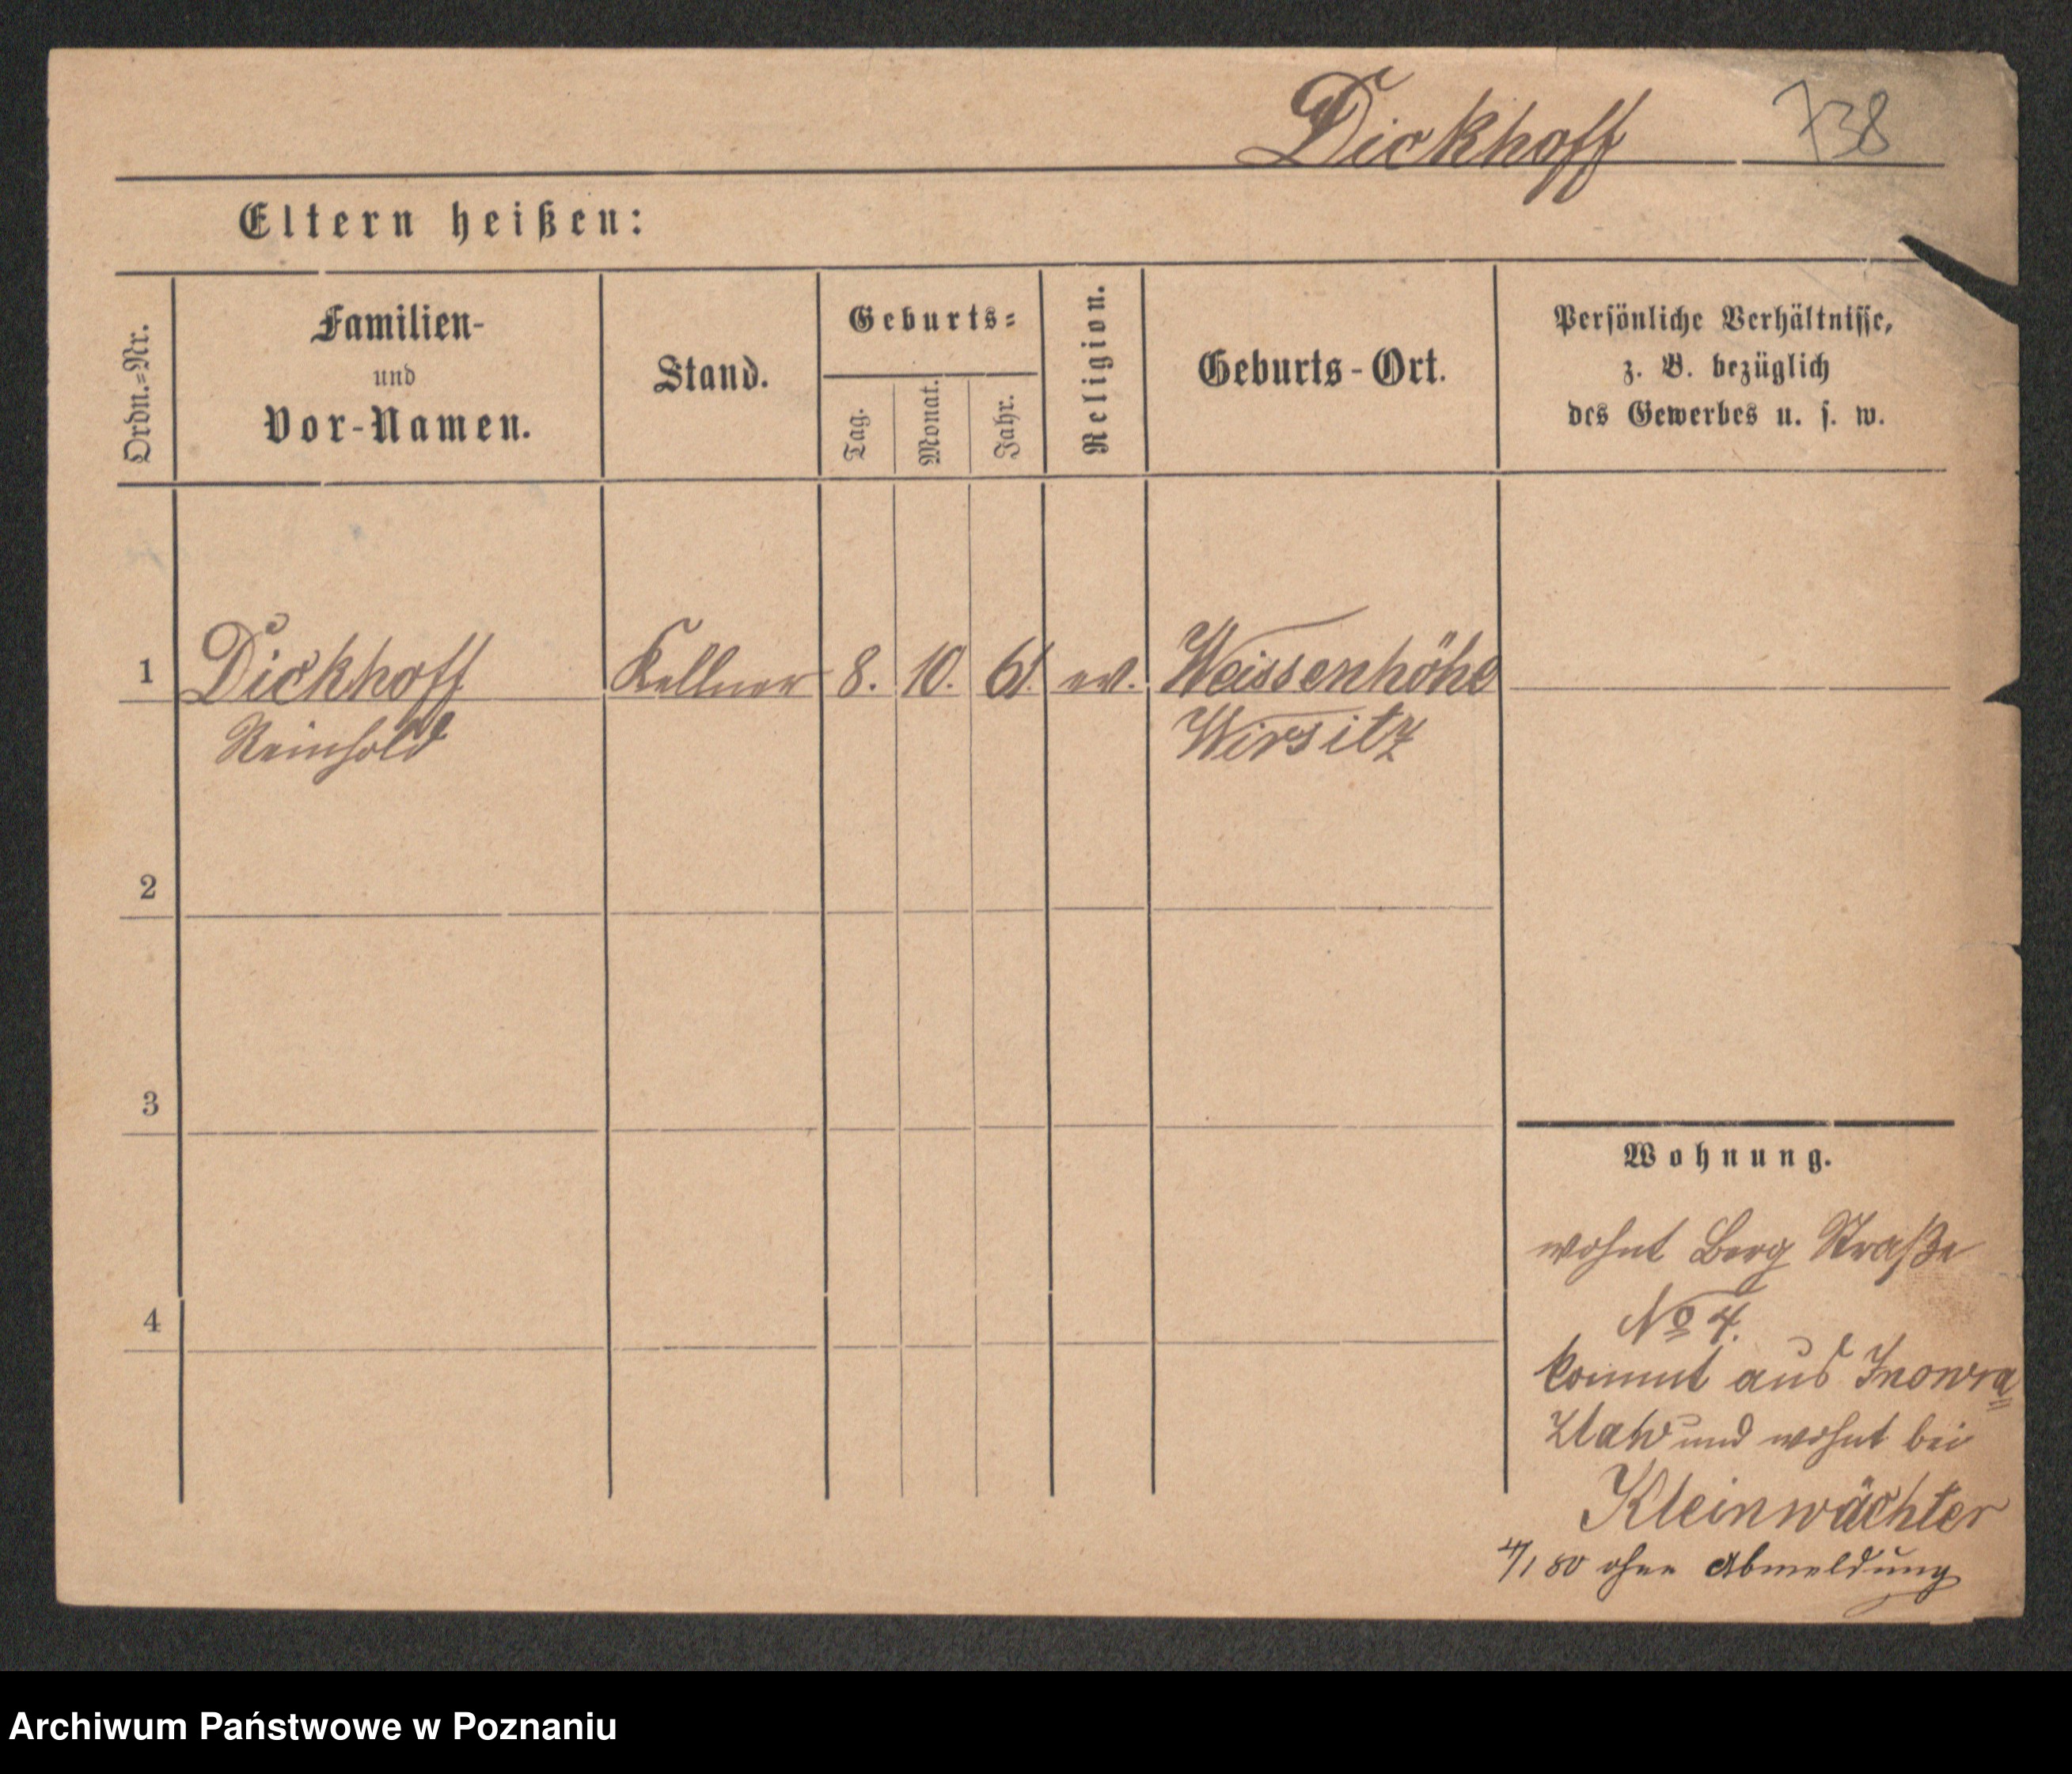 Dickhoff 738
Eltern heißen:
Ordn.=Nr.
Familien-
und
Vor-Namen.
Stand.
Geburts=
Tag.
Monat.
Jahr.
Religion.
Geburts-Ort.
Persönliche Verhältnisse,
z. B. bezüglich
des Gewerbes u. s. w.
1 Dickhoff Kellner 8. 10. 61. ev. Weissenhöhe
Reinhold Wirsitz
2
3
4
Wohnung.
wohnt Berg Straße
No 4.
kommt aus Inowra=
zlaw und wohnt bei
Kleinwächter
4/1 80 ohne Abmeldung
Archiwum Państwowe w Poznaniu